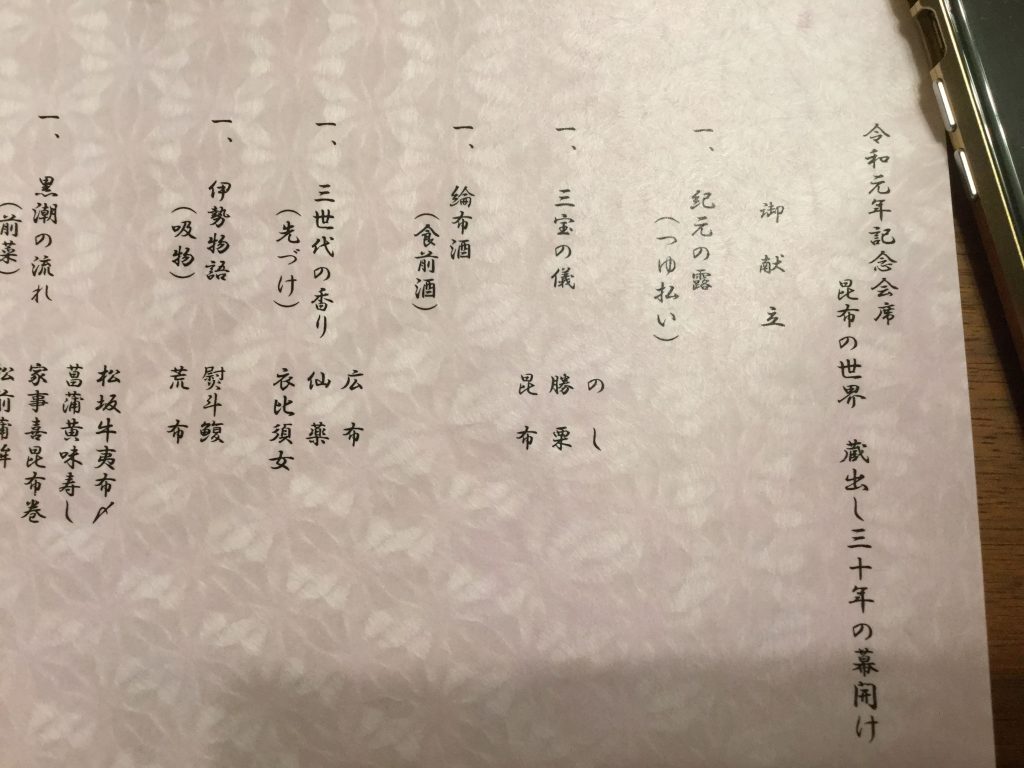 令和元年記念会席
昆布の世界 蔵出し三十年の幕開け
御献立
一、紀元の露
(つゆ払い)
一、三宝の儀
のし
勝栗
昆布
一、綸布酒
(食前酒)
一、三世代の香り
(先づけ)
広布
仙薬
衣比須女
一、伊勢物語
(吸物)
熨斗鰒
荒布
一、黒潮の流れ
(前菜)
松坂牛夷布〆
菖蒲黄味寿し
家事喜昆布巻
松前蒲鉾